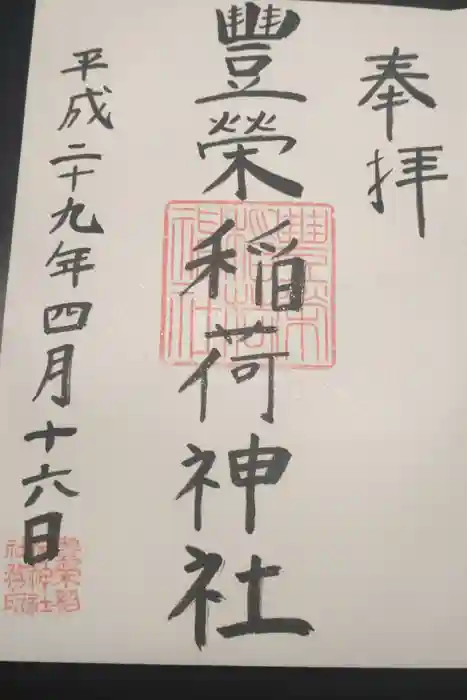 奉拝
豐榮稲荷神社
平成二十九年四月十六日